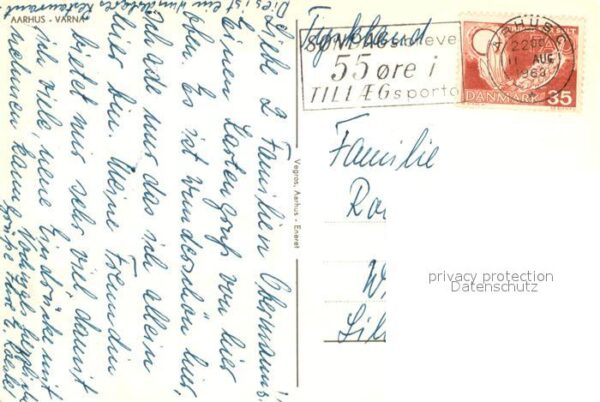 AARHUS - VARNA
Dies ist ein wunderbares Restaurant
Liebe 2 Familien
Ihnen einen Kartengruß von hier
oben. Es ist wunderschön hier,
schade nur das ich allein
hier bin. Meine Freundin
bietet mir sehr viel, damit
ich viele, neue Eindrücke mit
nehmen kann.
Grüße
Vagros, Aarhus - Eneret
Tyskland
SØNDAGSbreve
55 øre i
TILLÆGsporto
ÅRHUS C
2200
11 AUG
1963
DANMARK 35
Familie
privacy protection
Datenschutz